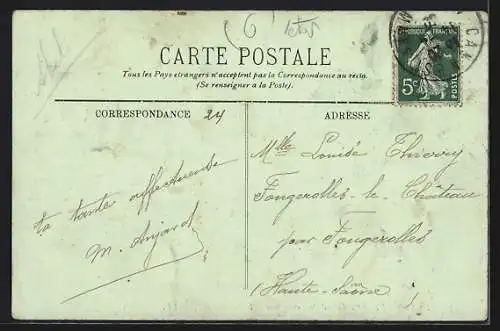 CARTE POSTALE
Tous les Pays étrangers n'acceptent pas la Correspondance au recto.
(Se renseigner à la Poste).
CORRESPONDANCE 24
ADRESSE
5c
Mlle Louise Thierry
Fougerolles-le-Château
par Fougerolles
(Haute-Saône)
ta tante affectueuse
M. Anjard